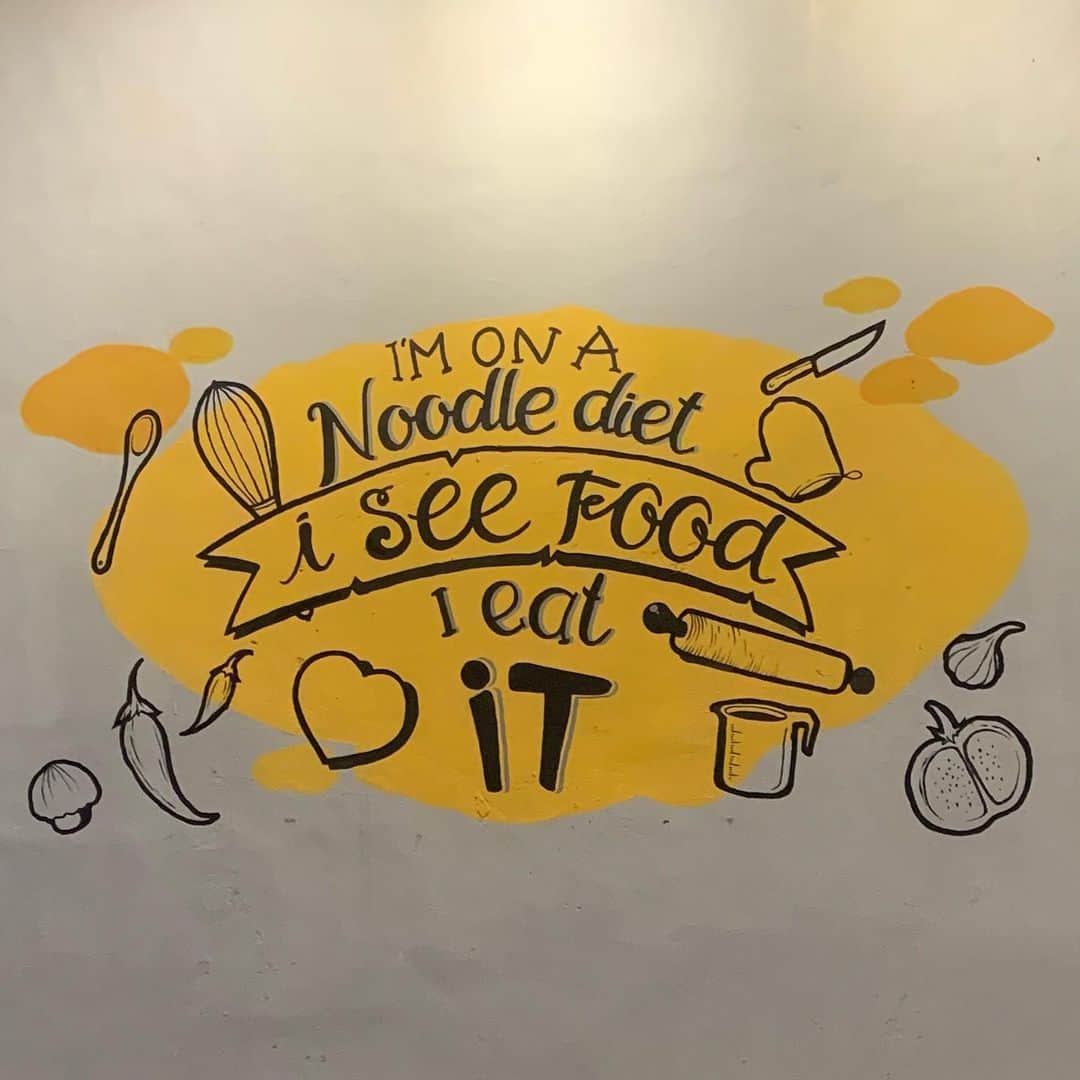 I'M ON A
Noodle diet
i see Food
I eat
iT